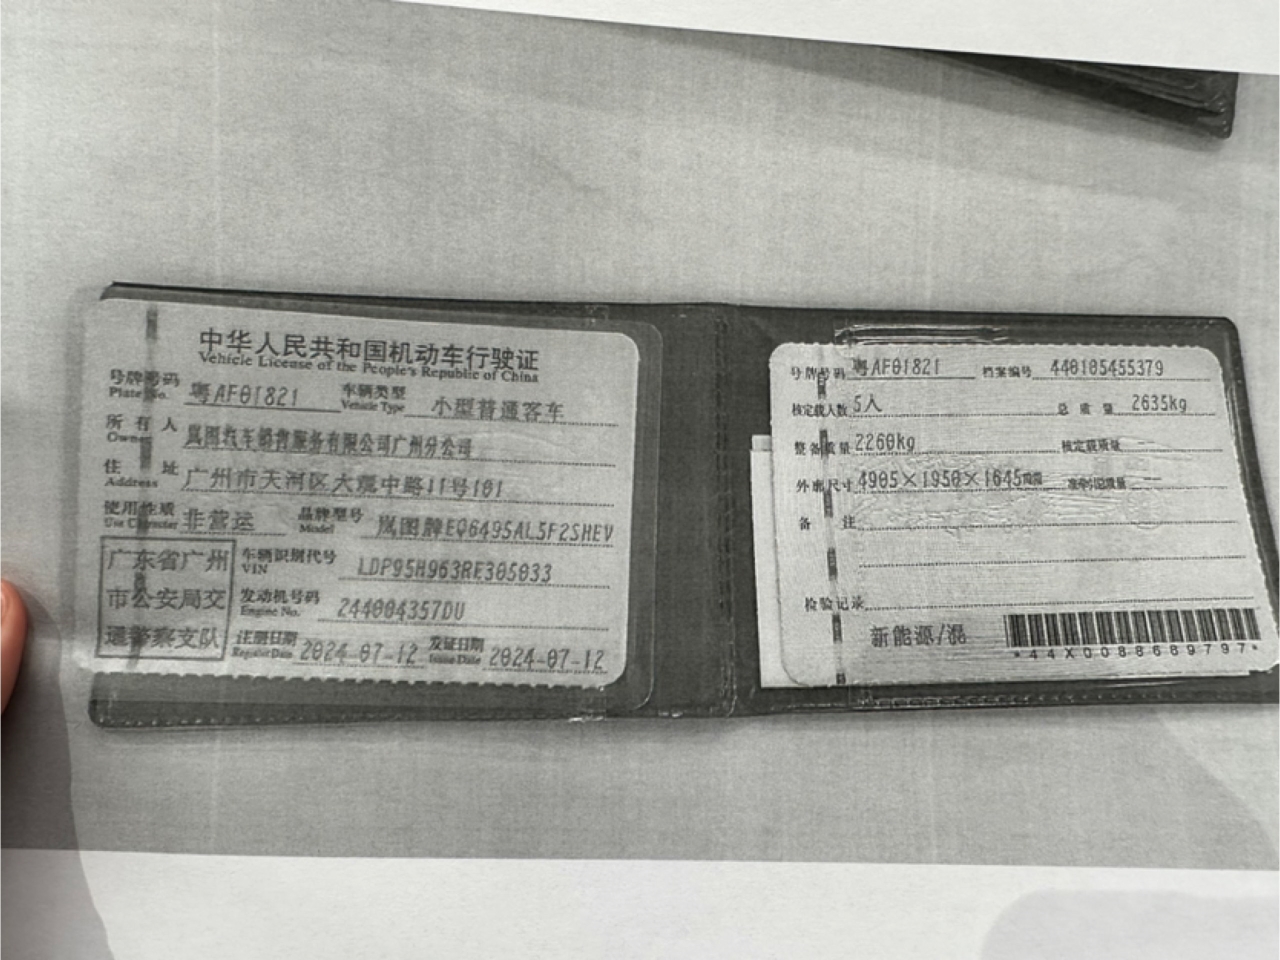 中华人民共和国机动车行驶证
Vehicle License of the People's Republic of China
号牌号码 粤AF01821 车辆类型 小型普通客车
Plate No. Vehicle Type
所有人 岚图汽车销售服务有限公司广州分公司
Owner
住址 广州市天河区大观中路11号101
Address
使用性质 非营运 品牌型号 岚图牌EQ6495AL5F2SHEV
Use Character Model
广东省广州
市公安局交
通警察支队
车辆识别代号 LDP95H963RE305033
VIN
发动机号码 244004357DU
Engine No.
注册日期 2024-07-12 发证日期 2024-07-12
Register Date Issue Date
号牌号码 粤AF01821 档案编号 440105455379
核定载人数 5人 总质量 2635kg
整备质量 2260kg 核定载质量 --
外廓尺寸 4905×1950×1645mm 准牵引总质量 --
备注
检验记录
新能源/混
*44X0088669797*